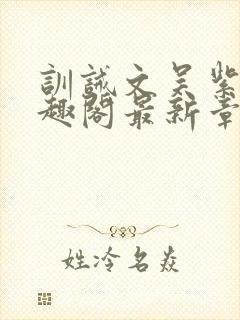 训诫文吴紫
趣阁最新章
姓冷名焱